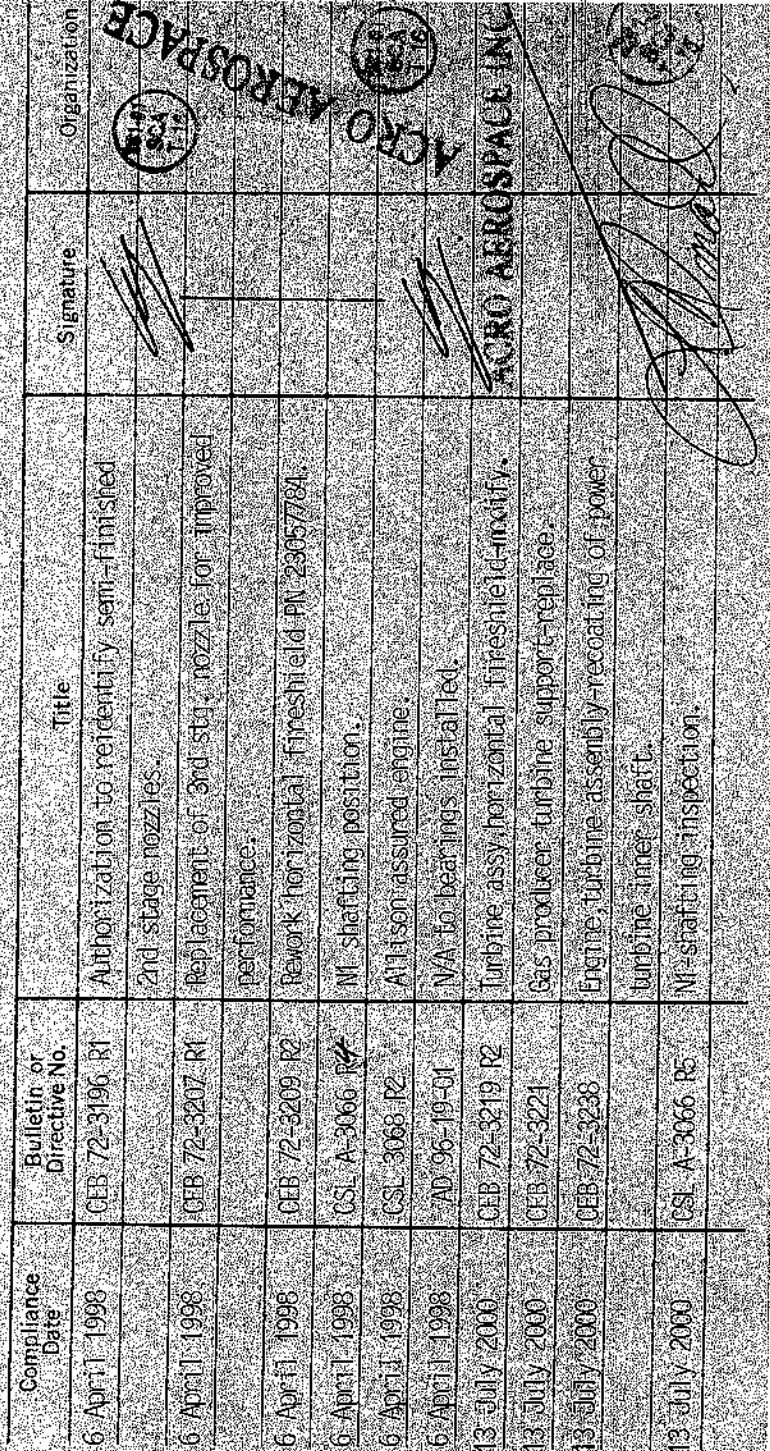 Compliance Date
Bulletin or Directive No.
Title
Signature
Organization
6 April 1998 CEB 72-3196 R1 Authorization to reidentify semi-finished
2nd stage nozzles.
6 April 1998 CEB 72-3207 R1 Replacement of 3rd stg. nozzle for improved
performance.
6 April 1998 CEB 72-3209 R2 Rework horizontal fireshield PN 23057784.
6 April 1998 CSL A-3066 R4 N1 shafting position.
6 April 1998 CSL 3068 R2 Allison assured engine.
6 April 1998 AD 96-19-01 N/A to bearings installed.
13 July 2000 CEB 72-3219 R2 Turbine assy horizontal fireshield-modify.
13 July 2000 CEB 72-3221 Gas producer turbine support-replace.
13 July 2000 CEB 72-3238 Engine, turbine assembly-recoating of power
turbine inner shaft.
13 July 2000 CSL A-3066 R5 N1-shafting inspection.
ACRO AEROSPACE
SCA
SCA
T 16
ACRO AEROSPACE INC